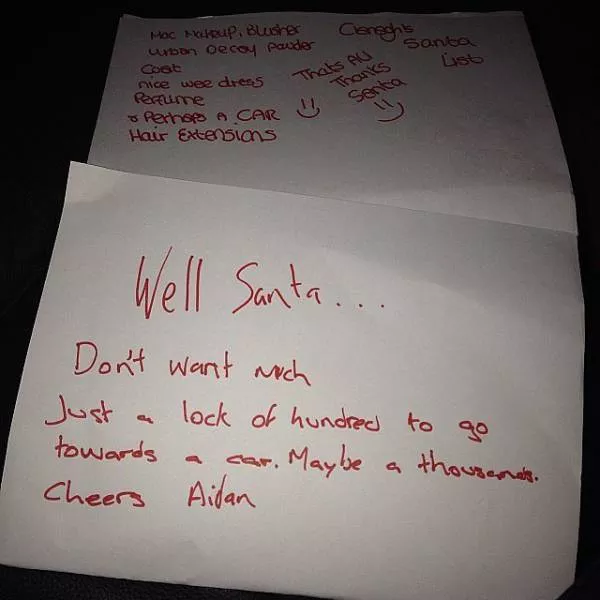 Mac Makeup, Blusher
Urban Decay Powder
Coat
nice wee dress
Perfume
& Perhaps A CAR
Hair Extensions
Santa
List
Thats All
Thanks
Santa
Well Santa...
Don't want much
Just a lock of hundred to go
towards a car. Maybe a thousands.
Cheers Aidan